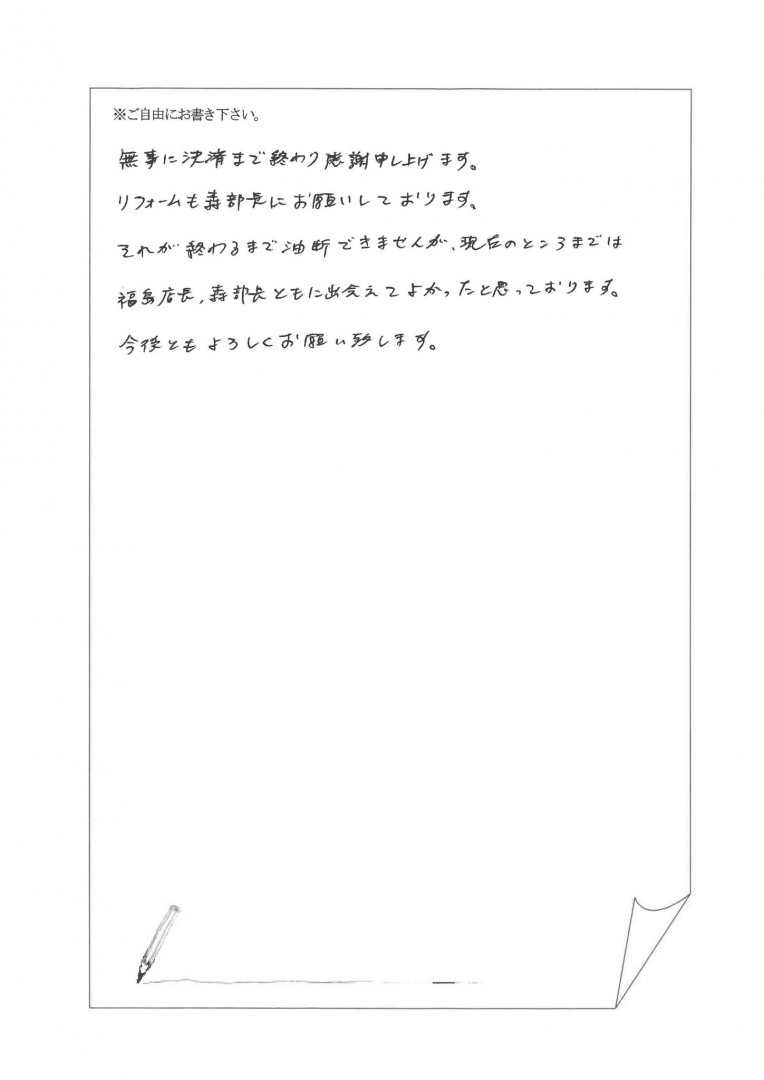 ※ご自由にお書き下さい。
無事に決済まで終わり感謝申し上げます。
リフォームも森部長にお願いしております。
それが終わるまで油断できませんが、現在のところまでは
福島店長、森部長ともに出会えてよかったと思っております。
今後ともよろしくお願い致します。